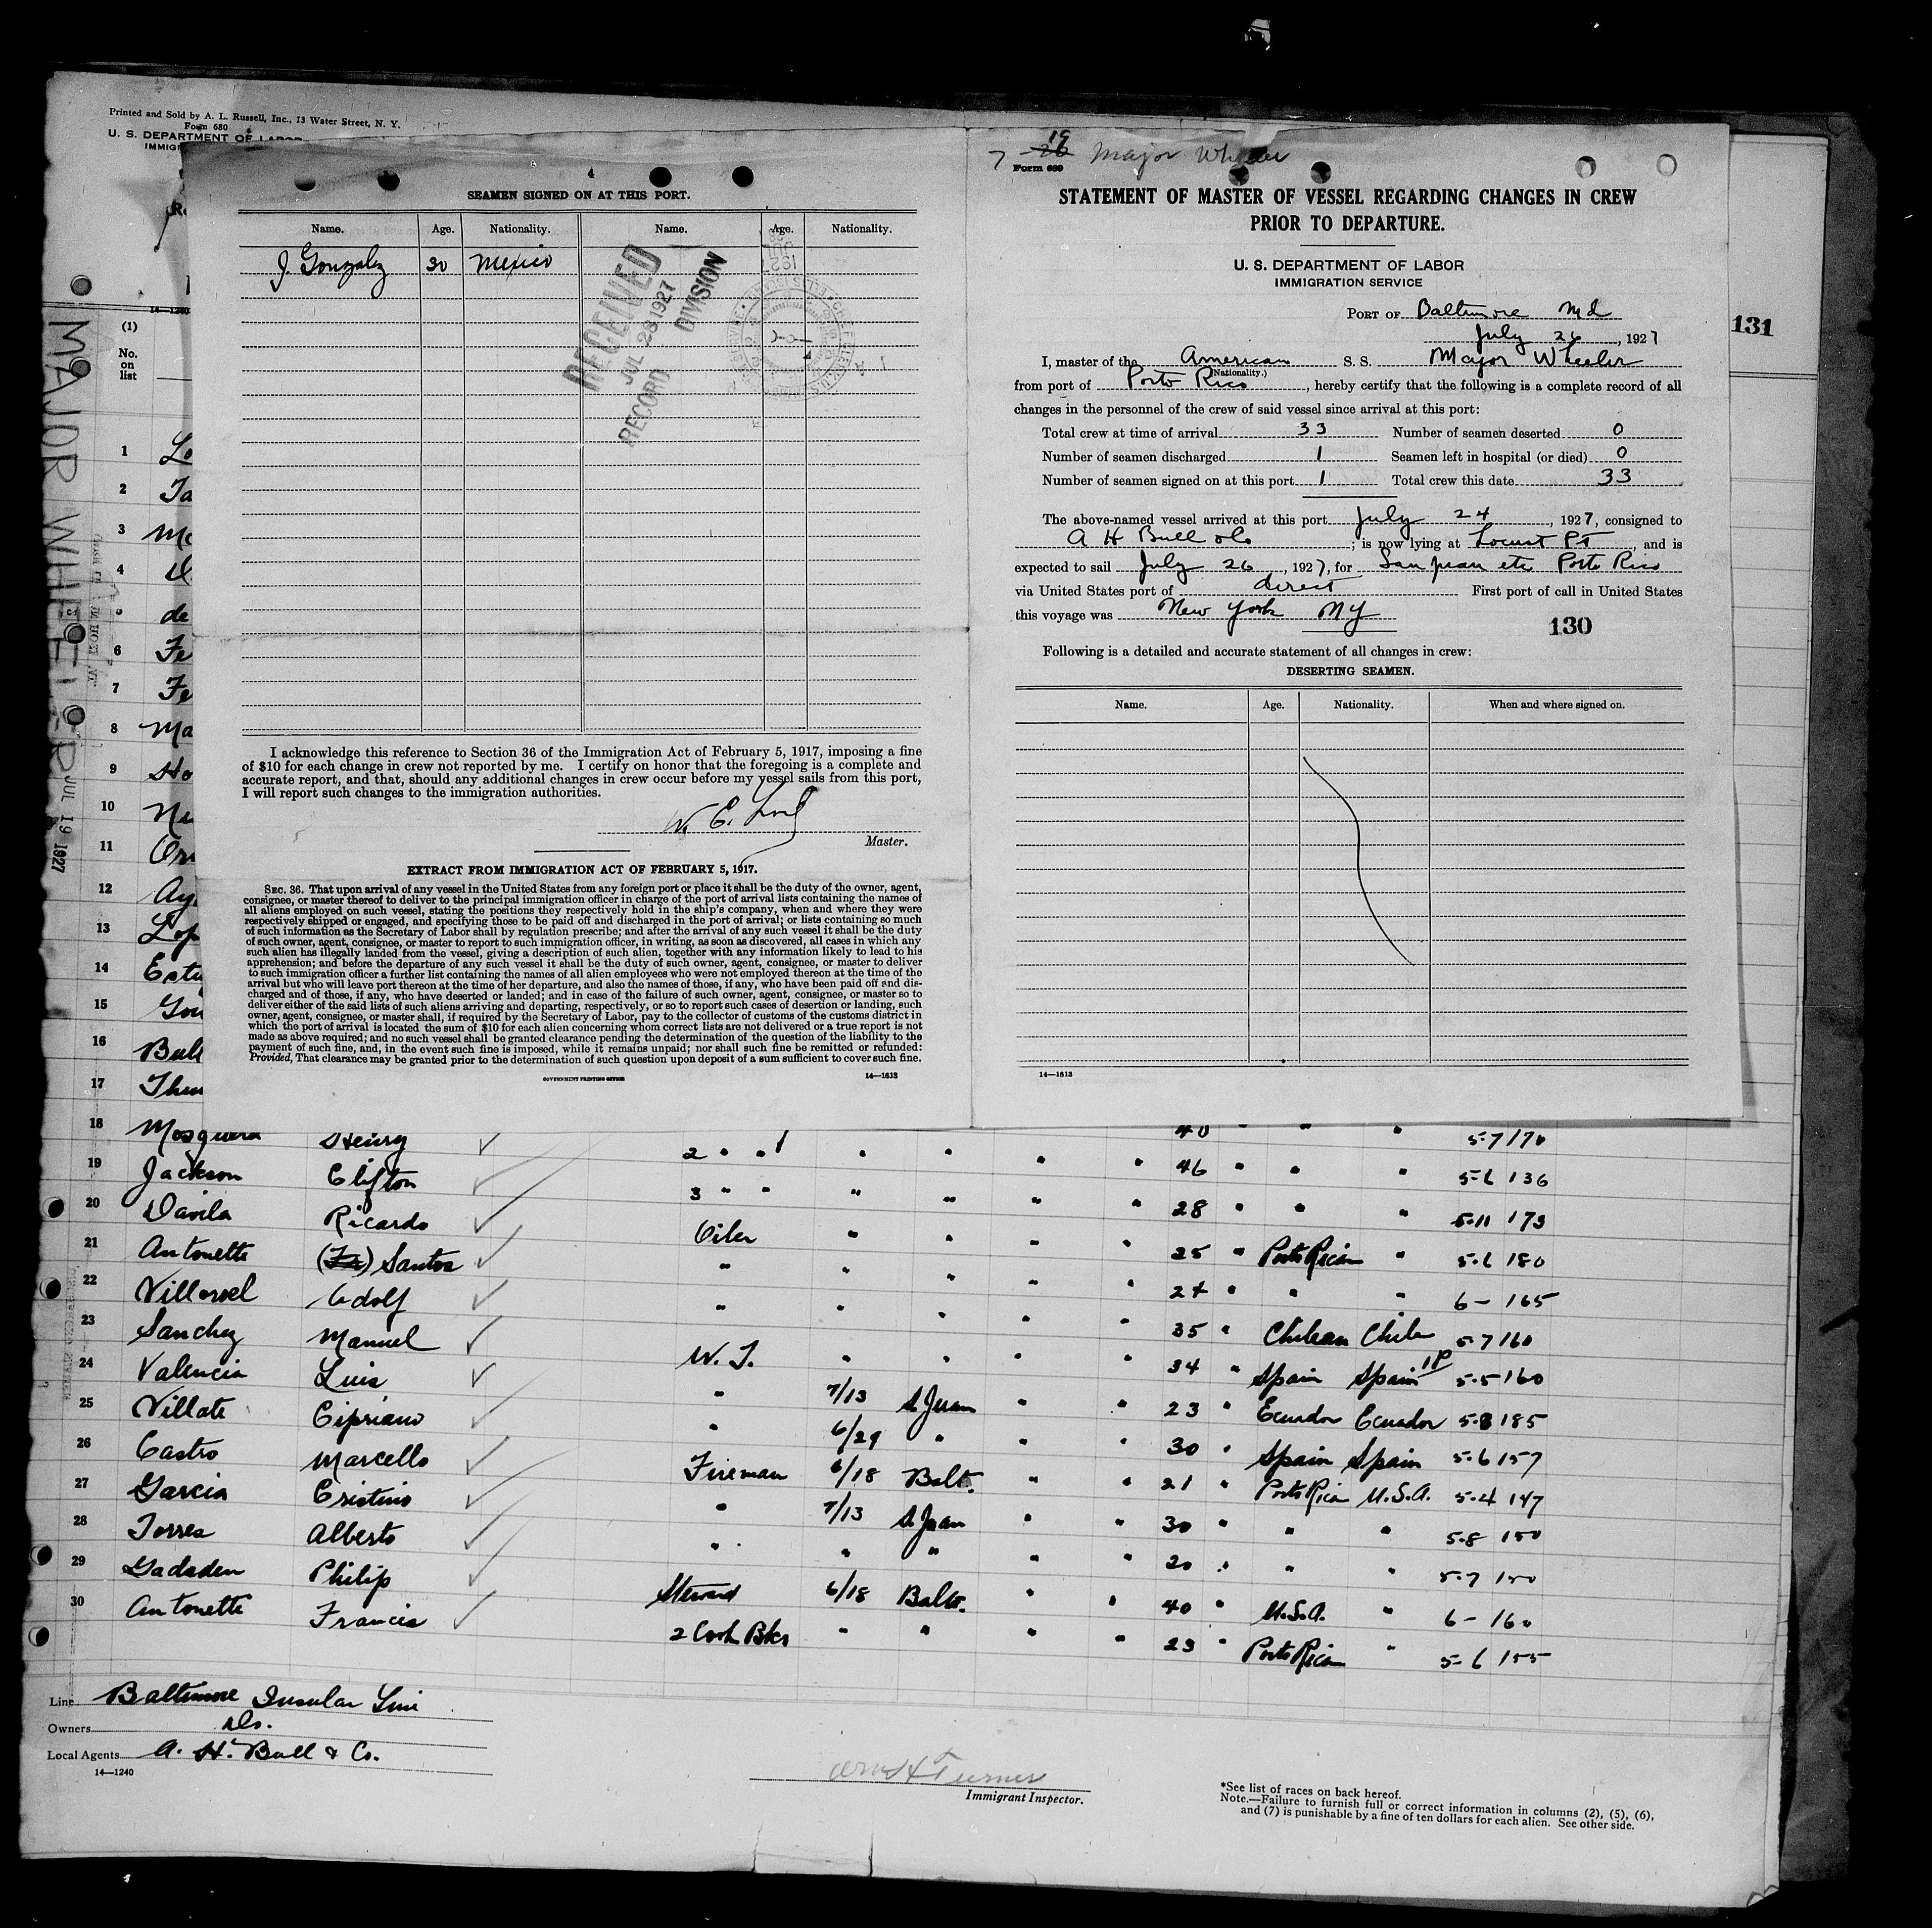 Printed and Sold by A. L. Russell, Inc., 13 Water Street, N. Y.
Form 680
U. S. DEPARTMENT OF LABOR
14—1240
(1)
No.
on
list
MAJOR WHEELER
JUL 19 1927
131
4
SEAMEN SIGNED ON AT THIS PORT.
Name. Age. Nationality. Name. Age. Nationality.
J Gonzalez 30 Mexico
RECEIVED
JUL 28 1927
RECORD DIVISION
I acknowledge this reference to Section 36 of the Immigration Act of February 5, 1917, imposing a fine
of $10 for each change in crew not reported by me. I certify on honor that the foregoing is a complete and
accurate report, and that, should any additional changes in crew occur before my vessel sails from this port,
I will report such changes to the immigration authorities.
W. E.
Master.
EXTRACT FROM IMMIGRATION ACT OF FEBRUARY 5, 1917.
SEC. 36. That upon arrival of any vessel in the United States from any foreign port or place it shall be the duty of the owner, agent,
consignee, or master thereof to deliver to the principal immigration officer in charge of the port of arrival lists containing the names of
all aliens employed on such vessel, stating the positions they respectively hold in the ship's company, when and where they were
respectively shipped or engaged, and specifying those to be paid off and discharged in the port of arrival; or lists containing so much
of such information as the Secretary of Labor shall by regulation prescribe; and after the arrival of any such vessel it shall be the duty
of such owner, agent, consignee, or master to report to such immigration officer, in writing, as soon as discovered, all cases in which any
such alien has illegally landed from the vessel, giving a description of such alien, together with any information likely to lead to his
apprehension; and before the departure of any such vessel it shall be the duty of such owner, agent, consignee, or master to deliver
to such immigration officer a further list containing the names of all alien employees who were not employed thereon at the time of the
arrival but who will leave port thereon at the time of her departure, and also the names of those, if any, who have been paid off and dis-
charged and of those, if any, who have deserted or landed; and in case of the failure of such owner, agent, consignee, or master so to
deliver either of the said lists of such aliens arriving and departing, respectively, or so to report such cases of desertion or landing, such
owner, agent, consignee, or master shall, if required by the Secretary of Labor, pay to the collector of customs of the customs district in
which the port of arrival is located the sum of $10 for each alien concerning whom correct lists are not delivered or a true report is not
made as above required; and no such vessel shall be granted clearance pending the determination of the question of the liability to the
payment of such fine, and, in the event such fine is imposed, while it remains unpaid; nor shall such fine be remitted or refunded:
Provided, That clearance may be granted prior to the determination of such question upon deposit of a sum sufficient to cover such fine.
GOVERNMENT PRINTING OFFICE 14—1613
7 - 26 19 Major Wheeler
Form 680
STATEMENT OF MASTER OF VESSEL REGARDING CHANGES IN CREW
PRIOR TO DEPARTURE.
U. S. DEPARTMENT OF LABOR
IMMIGRATION SERVICE
PORT OF Baltimore Md
July 26, 1927
I, master of the American S. S. Major Wheeler
(Nationality.)
from port of Porto Rico, hereby certify that the following is a complete record of all
changes in the personnel of the crew of said vessel since arrival at this port:
Total crew at time of arrival 33 Number of seamen deserted 0
Number of seamen discharged 1 Seamen left in hospital (or died) 0
Number of seamen signed on at this port 1 Total crew this date 33
The above-named vessel arrived at this port July 24, 1927, consigned to
A H Bull & Co; is now lying at Locust Pt, and is
expected to sail July 26, 1927, for San Juan etc Porto Rico
via United States port of direct First port of call in United States
this voyage was New York NY
130
Following is a detailed and accurate statement of all changes in crew:
DESERTING SEAMEN.
Name. Age. Nationality. When and where signed on.
14—1613
1 Lo
2 Ta
3 Mc
4 D
5 de
6 Fe
7 Fe
8 Ma
9 Ho
10
11
12
13 Lop
14
15 Gon
16
17
18 Mosquera Henry 2 " " " " " " 40 " " " 5-7 170
19 Jackson Clifton 3 " " " " " " 46 " " " 5-6 136
20 Davila Ricardo Oiler " " " " 28 " " " 5-11 173
21 Antonette (Fr) Santos " " " " " 25 " Porto Rican " 5-6 180
22 Villaroel Adolf " " " " " 24 " " " 6 - 165
23 Sanchez Manuel W. T. " " " " 35 " Chilean Chile 5-7 160
24 Valencia Luis " 7/13 S Juan " " 34 " Spain Spain 5-5 160
25 Villate Cipriano " 6/29 " " " 23 " Ecuador Ecuador 5-8 185
26 Castro Marcello Fireman 6/18 Balt. " " 30 " Spain Spain 5-6 157
27 Garcia Cristino " 7/13 S Juan " " 21 " Porto Rican U.S.A. 5-4 147
28 Torres Alberto " " " " " 30 " " " 5-8 150
29 Gadsden Philip Steward 6/18 Balto. " " 20 " " " 5-7 150
30 Antonette Francis 2 Cook Bkr " " " " 40 " U.S.A. " 6 - 160
23 " Porto Rican " 5-6 155
Line Baltimore Insular Line
Owners Do.
Local Agents A. H. Bull & Co.
14—1240
Turner
Immigrant Inspector.
*See list of races on back hereof.
Note.—Failure to furnish full or correct information in columns (2), (5), (6),
and (7) is punishable by a fine of ten dollars for each alien. See other side.